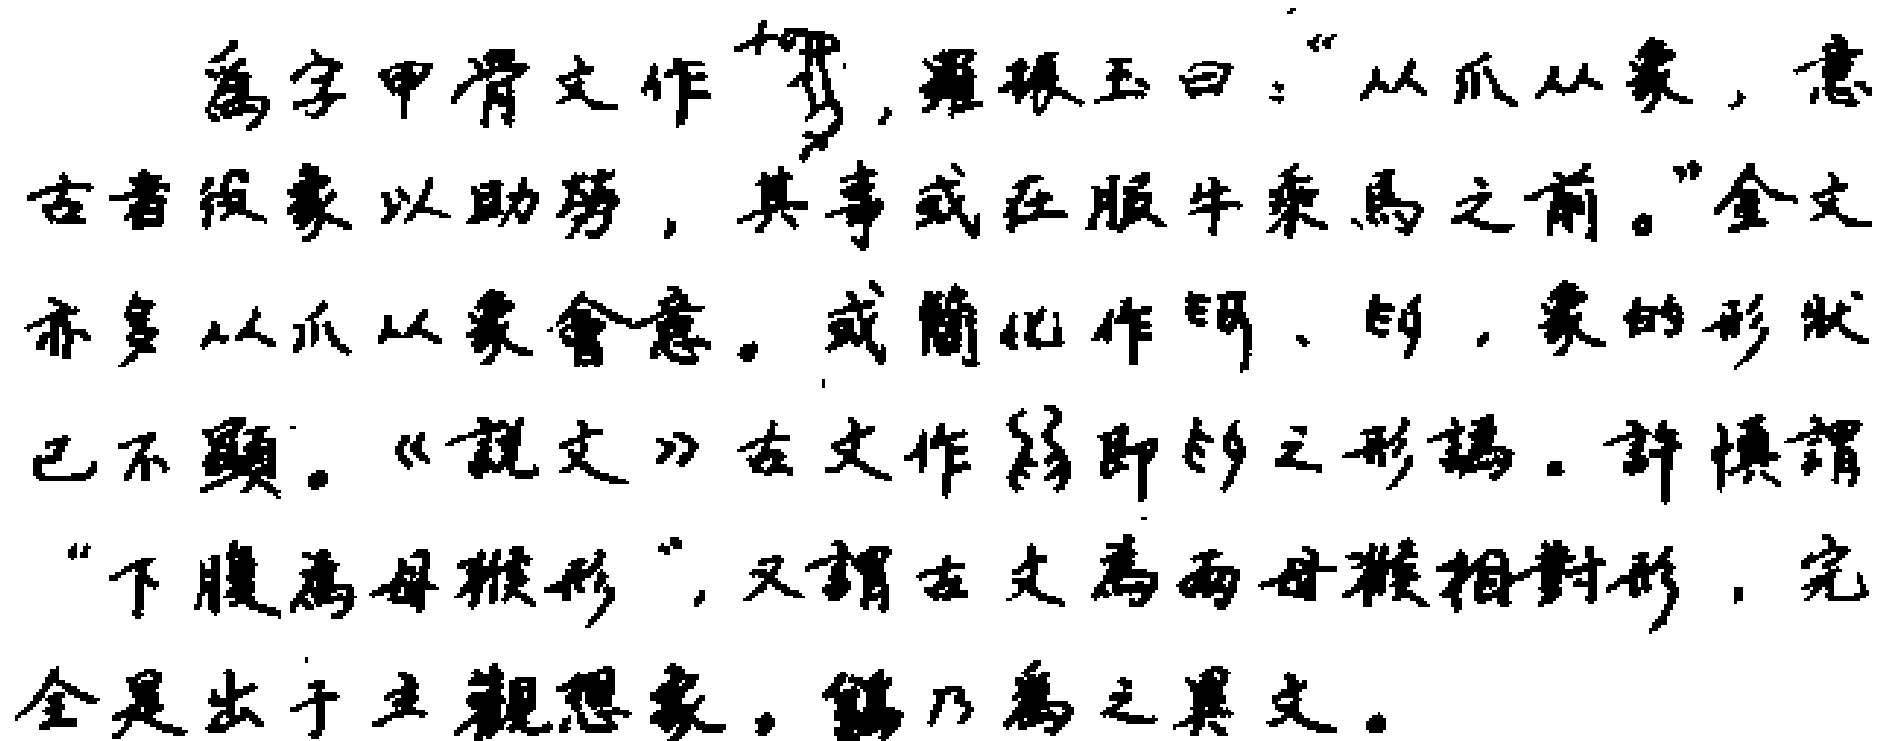 爲字甲骨文作，羅振玉曰：“从爪从象，意
古者役象以助勞，其事或在服牛乘馬之前。”金文
亦多从爪从象會意。或簡化作、，象的形狀
已不顯。《説文》古文作即之形譌。許慎謂
“下腹爲母猴形”，又謂古文爲兩母猴相對形，完
全是出于主觀想象。乃爲之異文。